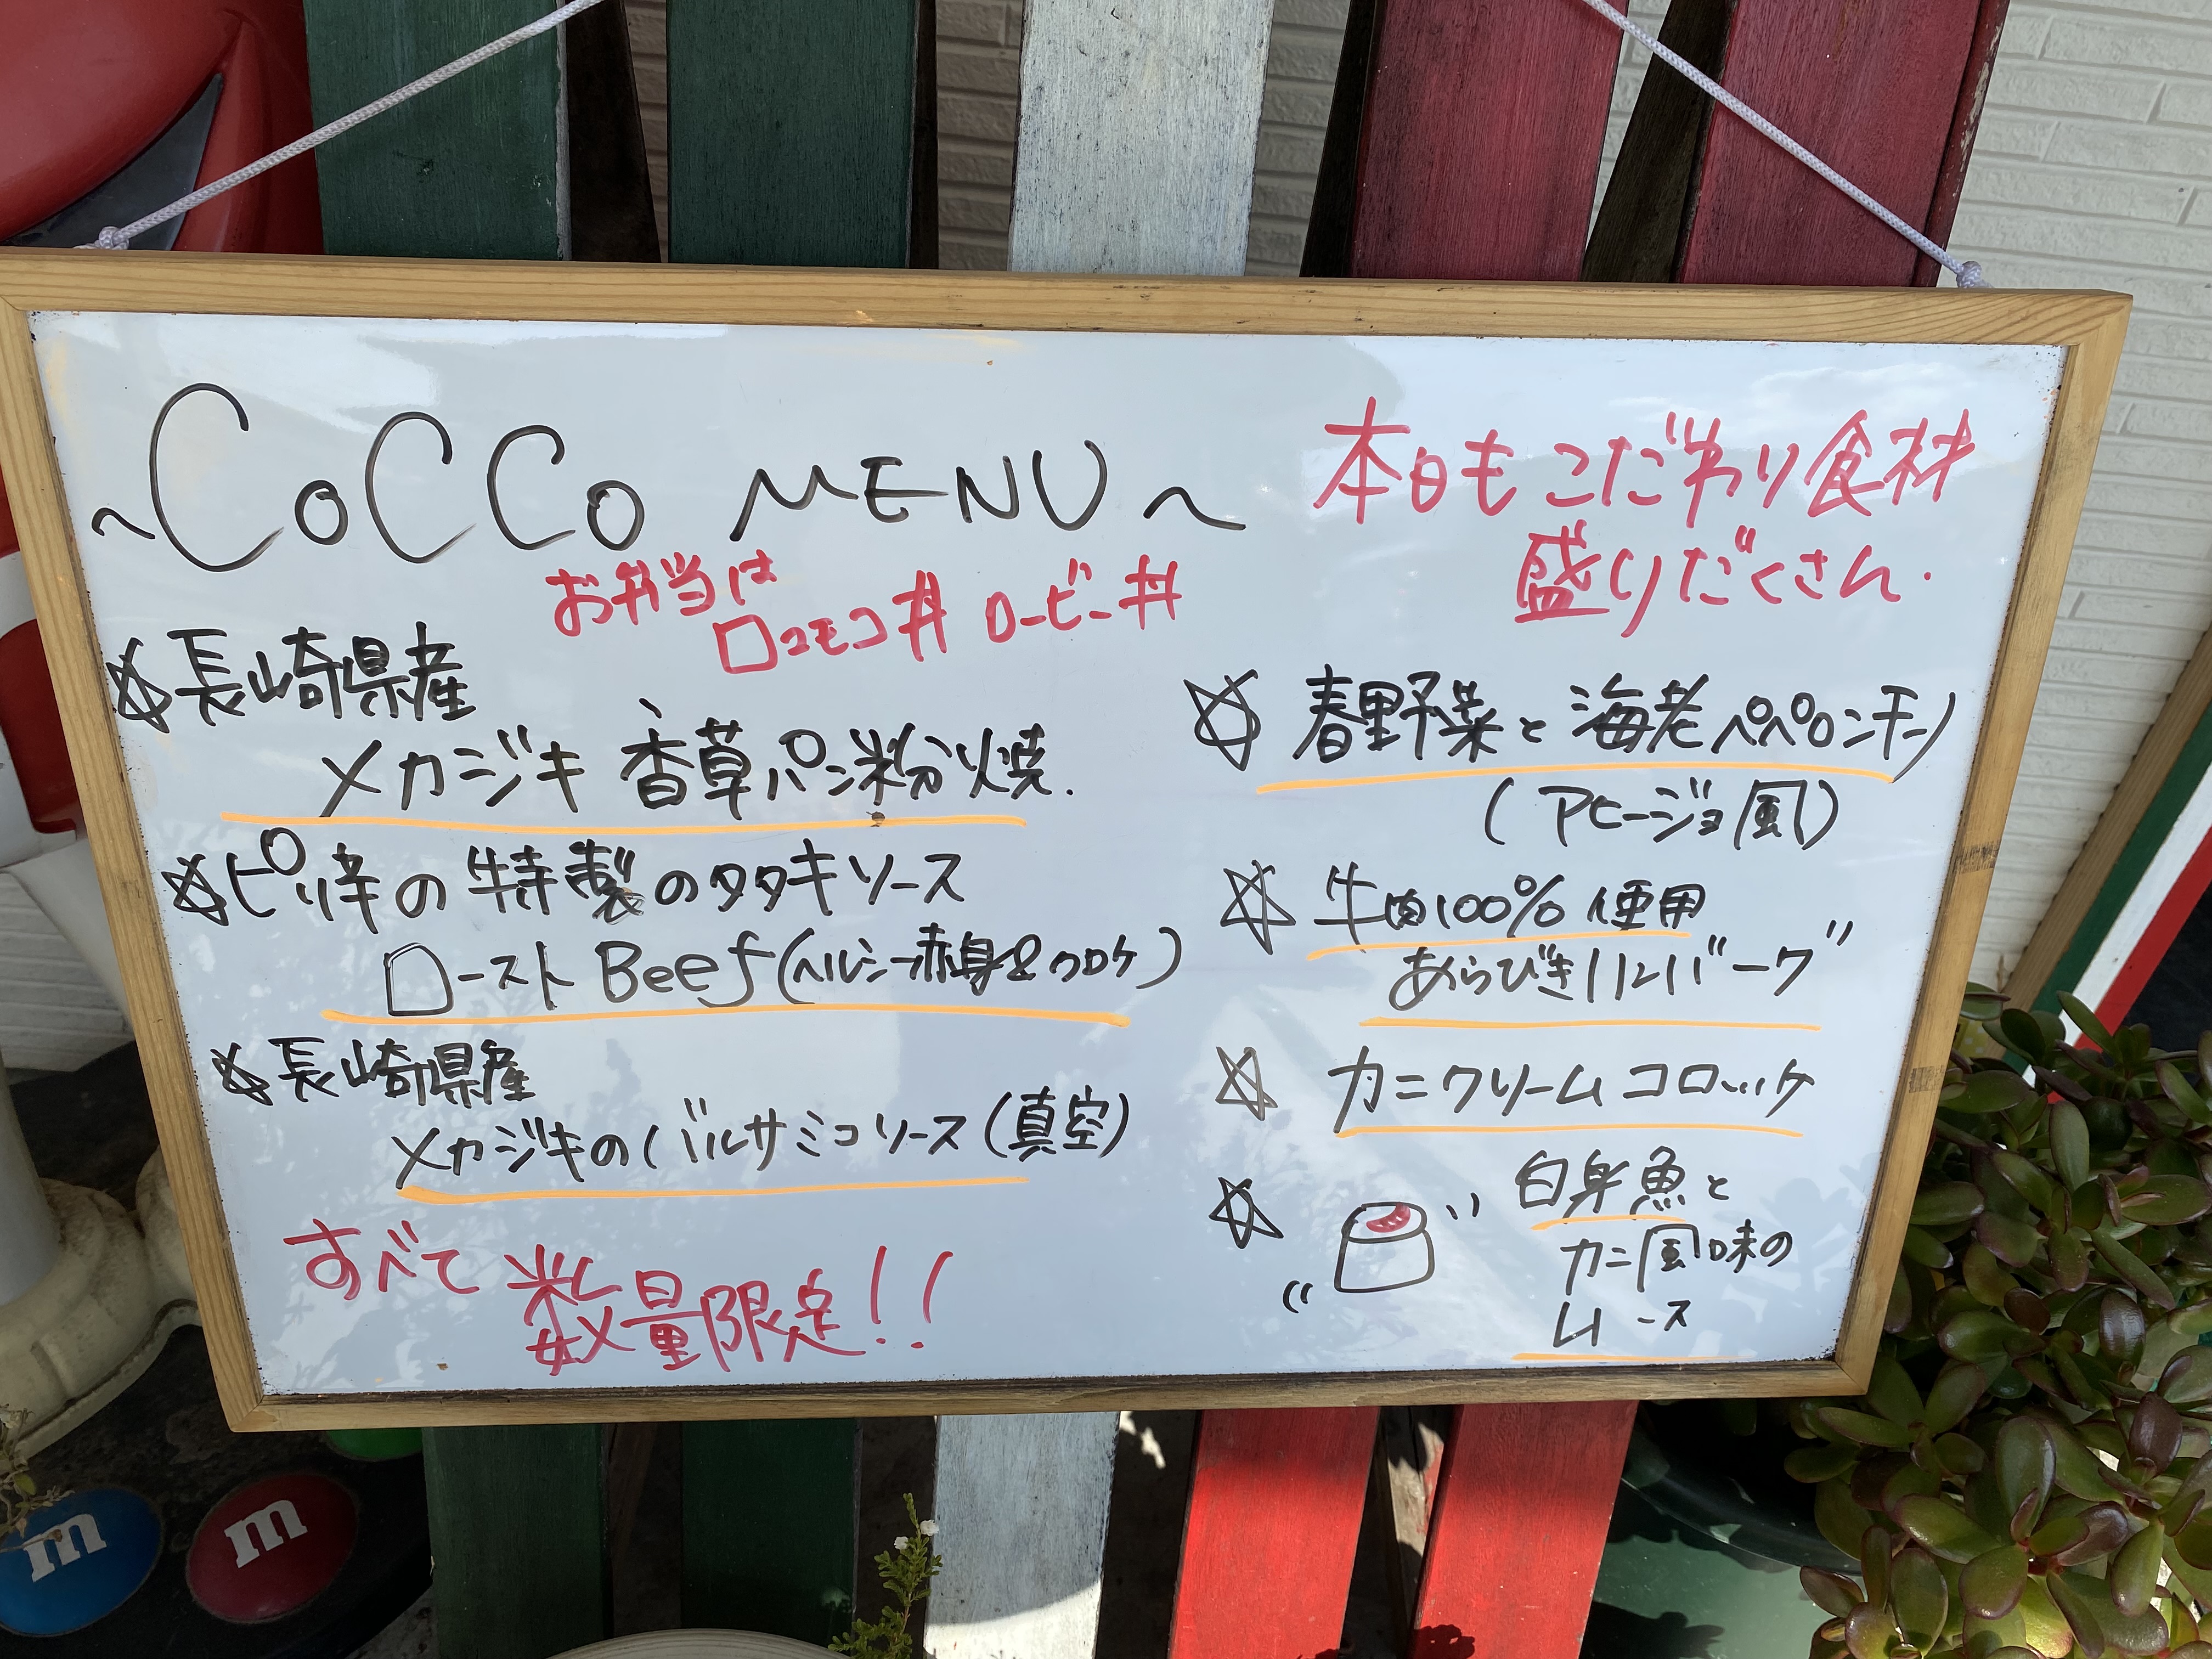 ~CoCCo MENU~
お弁当は
ロコモコ丼 ロービー丼
☆長崎県産
メカジキ 香草パン粉焼.
☆ピリ辛の特製のタタキソース
ローストBeef(ヘルシー赤身
☆長崎県産
メカジキのバルサミコソース(真空)
すべて数量限定!!
本日もこだわり食材
盛りだくさん.
☆春野菜と海老ペペロンチーノ
(アヒージョ風)
☆牛肉100%使用
あらびきハンバーグ"
☆カニクリームコロッケ
☆白身魚と
カニ風味の
ムース
m
m